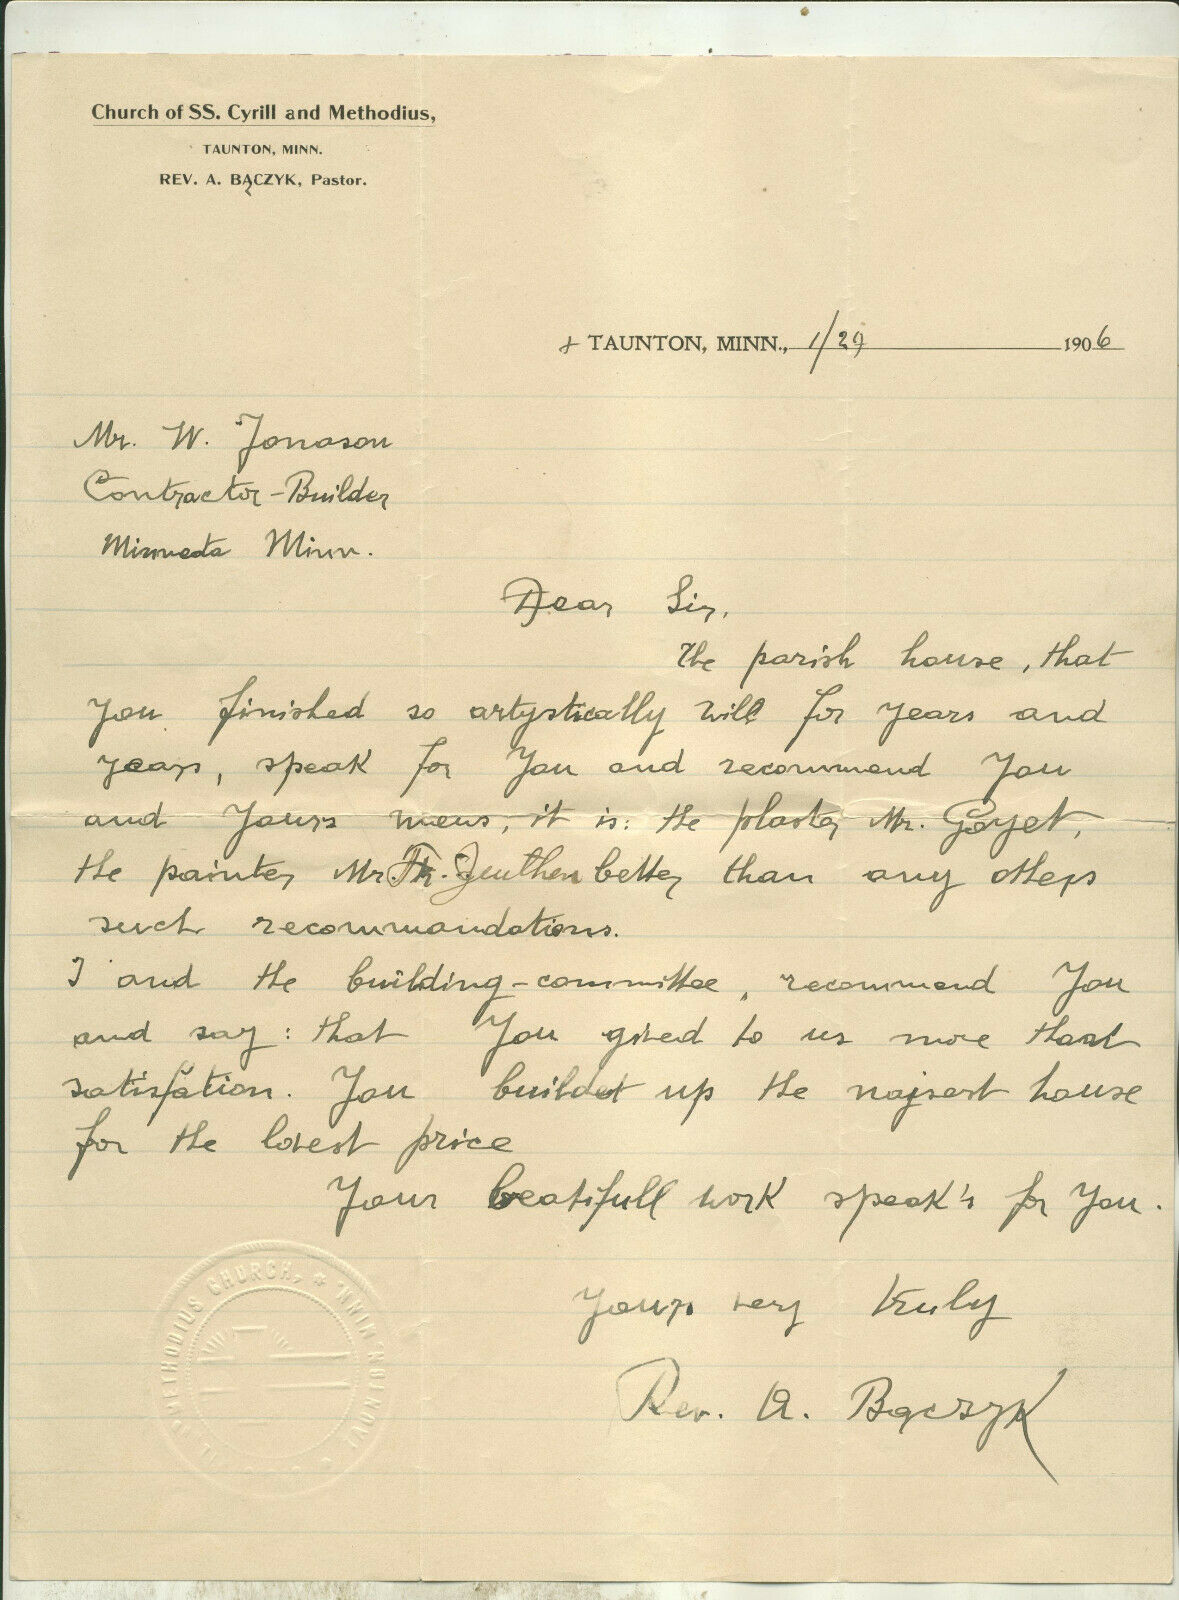 Church of SS. Cyrill and Methodius,
TAUNTON, MINN.
REV. A. BĄCZYK, Pastor.
TAUNTON, MINN., 1/29 1906
Mr. W. Jonason
Contractor-Builder
Minneota Minn.
Dear Sir,
The parish house, that
You finished so artystically will for years and
years, speak for You and recommend You
and Yours mens, it is: the plaster Mr. Goyet,
the painter Mr. Fr. Zeuthen better than any others
such recommandations.
I and the building-committee, recommend You
and say: that You gived to us more than
satisfation. You build up the najsest house
for the lovest price
Your beatifull work speak's for You.
Yours very truly
Rev. A. Bączyk
METHODIUS CHURCH, TAUNTON, MINN.